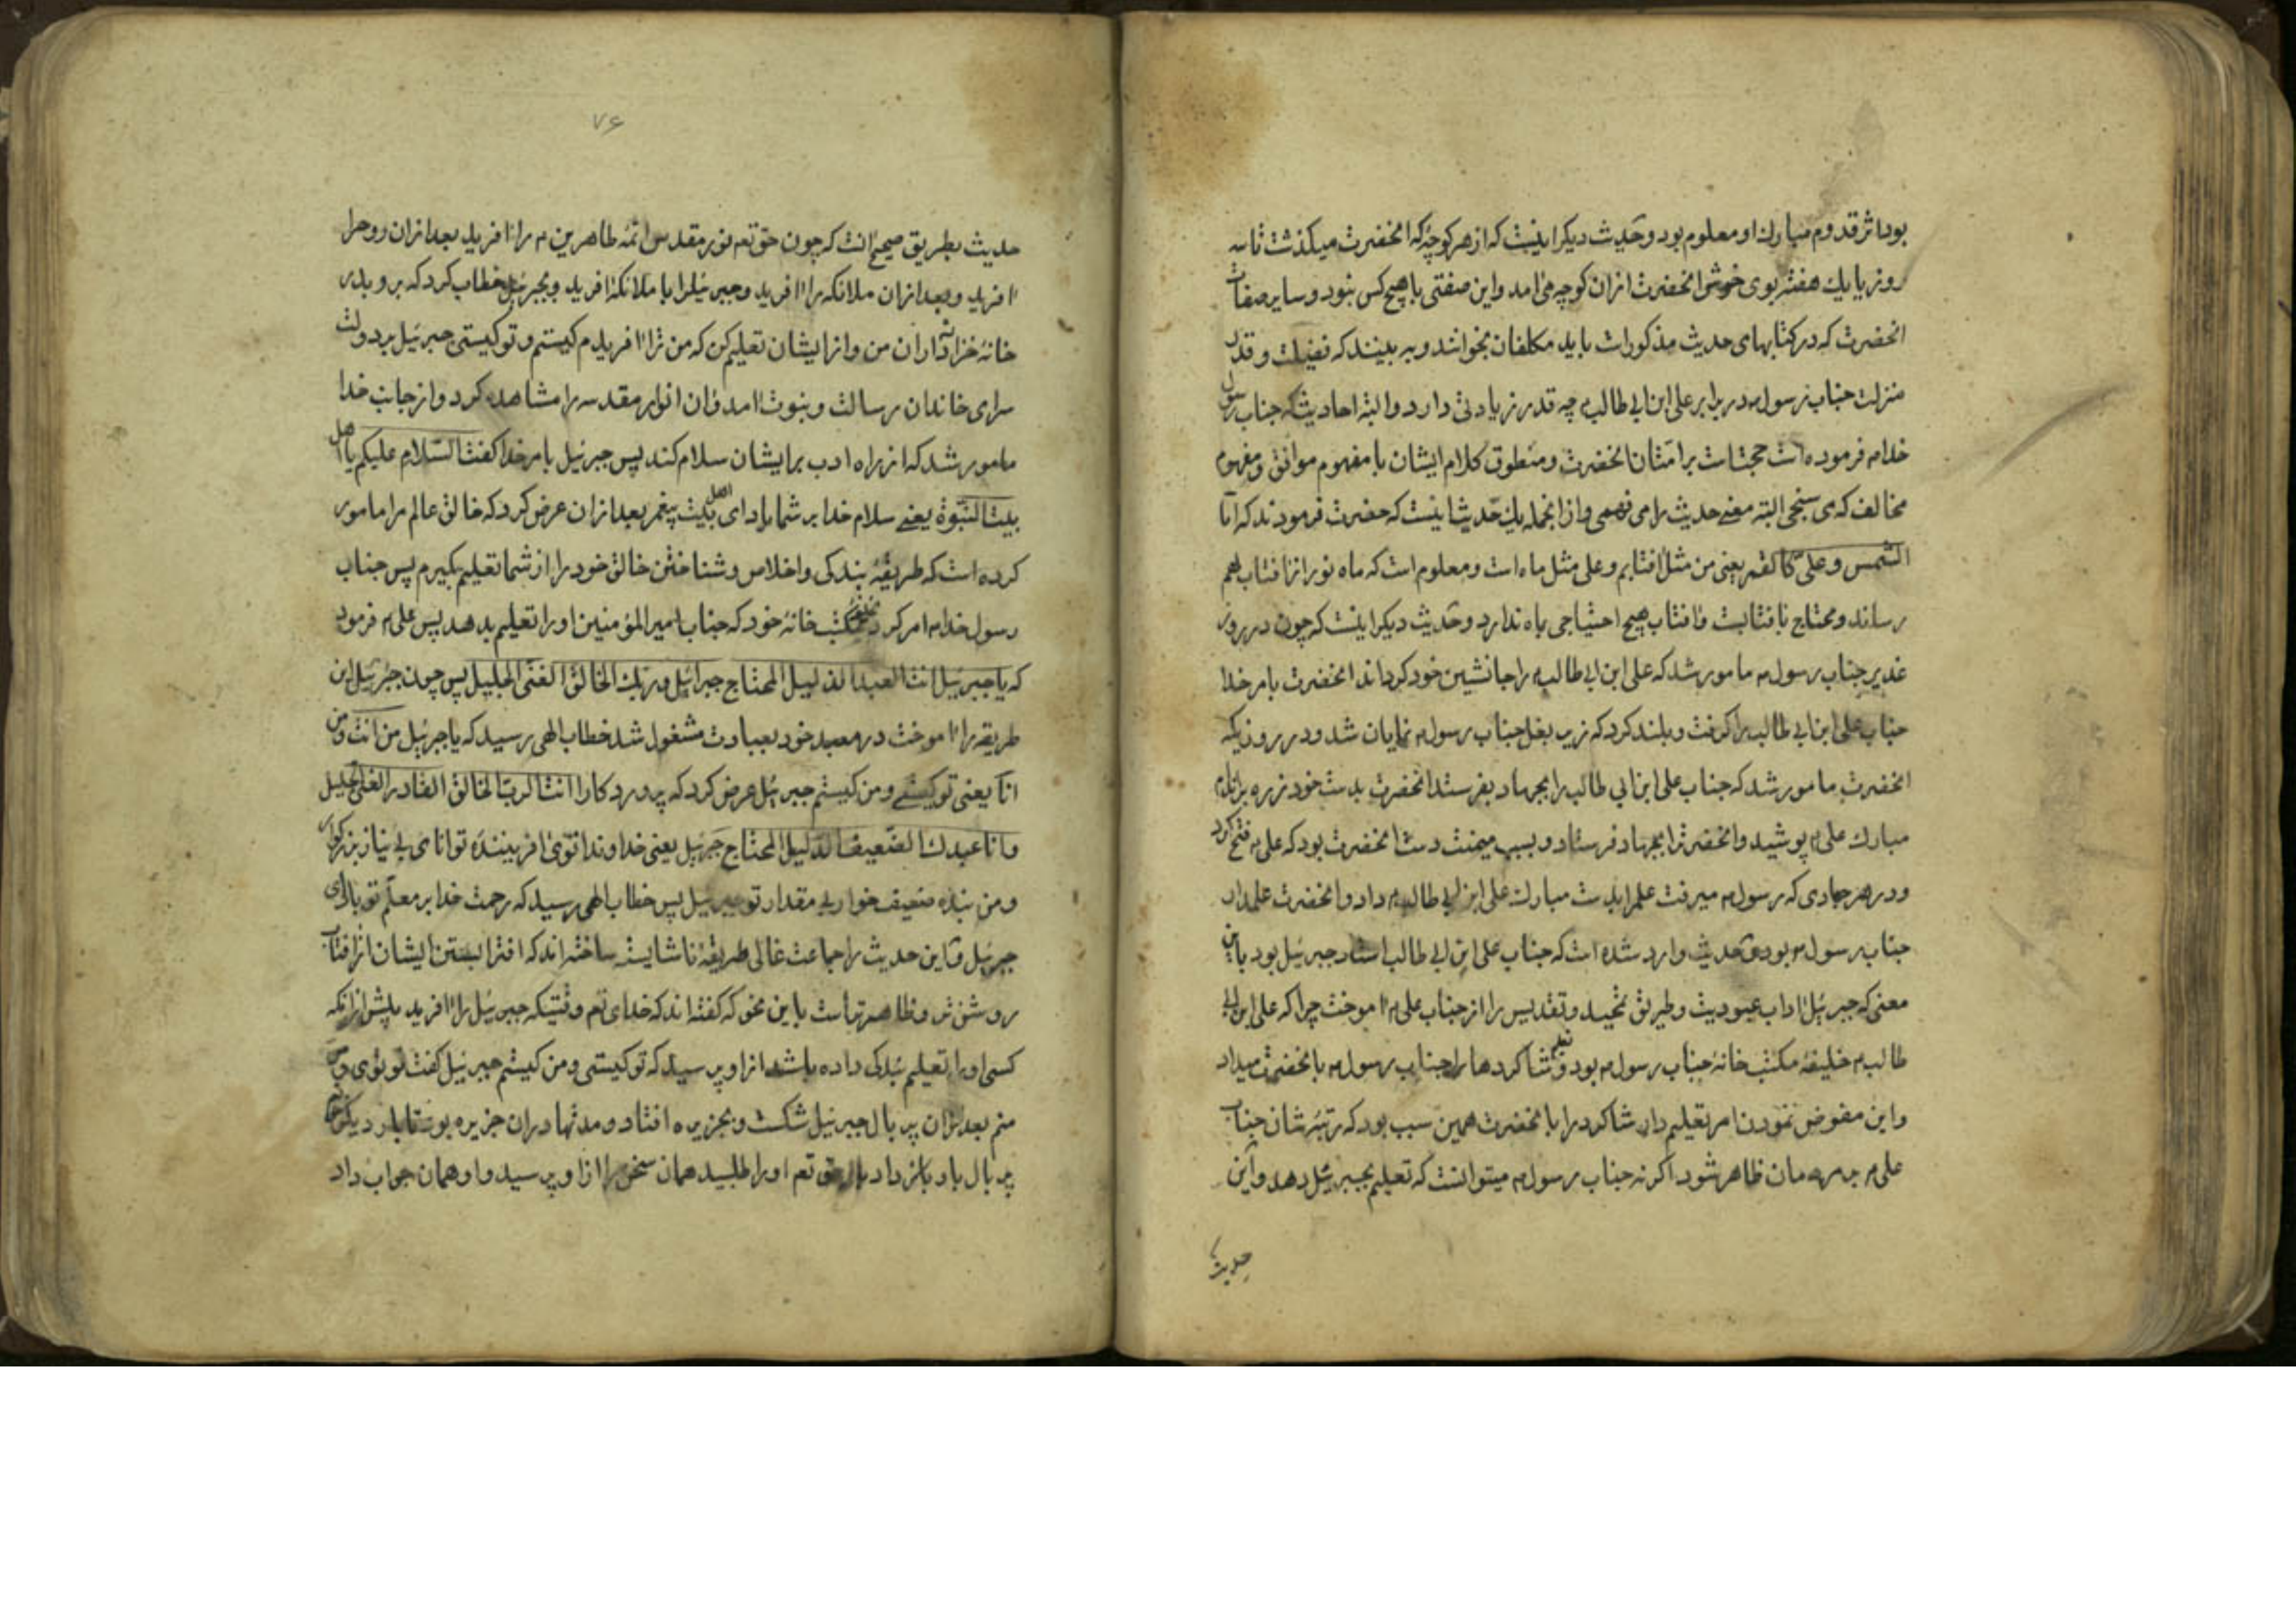 بود اثر قدوم مبارك او معلوم بود و حدیث دیگر اینست که از هر کوچهٔ که انحضرت میگذشت تا سه
روز یا یك هفته بوی خوش انحضرت ازان کوچه می امد و این صفتی با هیچ کس نبود و سایر صفات
انحضرت که در کتابهای حدیث مذکور است باید مکلفان بخوانند و به بینند که فضیلت و قدر
منزلت جناب رسول م در برابر علی ابن ابی طالب م چه قدر زیادتی دارد و البته احادیث که جناب رسول
خدا م فرموده است حجت است بر امتان انحضرت و منطوق کلام ایشان با مفهوم موافق و مفهوم
مخالف که می سنجی البته معنے حدیث را می فهمی و از انجمله یك حدیث اینست که حضرت فرمودند که انا
الشمس و علیّ کالقمر یعنی من مثل افتابم و علی مثل ماه است و معلوم است که ماه نور را از افتاب بهم
رساند و محتاج بافتابست و افتاب هیچ احتیاجی بماه ندارد و حدیث دیگر اینست که چون در روز
غدیر جناب رسول م مامور شد که علی ابن ابی طالب م را جانشین خود گرداند انحضرت بامر خدا
جناب علی ابن ابی طالب را گرفت و بلند کرد که زیر بغل جناب رسول م نمایان شد و در روزیکه
انحضرت مامور شد که جناب علی ابن ابی طالب را بجهاد بفرستد انحضرت بدست خود زره بر اندام
مبارك علی م پوشید و انحضرت را بجهاد فرستاد و بسبب میمنت دست انحضرت بود که علی م فتح کرد
و در هر جهادی که رسول م میرفت علم را بدست مبارك علی ابن ابی طالب م داد و انحضرت علمدار
جناب رسول م بود و حدیث وارد شده است که جناب علی ابن ابی طالب استاد جبرئیل بود باین
معنی که جبرئیل اداب عبودیت و طریق تمجید و تقدیس را از جناب علی م اموخت چرا که علی ابن ابی
طالب م خلیفهٔ مکتب خانهٔ جناب رسول م بود و تعلیم شاکردها را جناب رسول م بانحضرت میداد
و این مفوض نمودن امر تعلیم دادن شاکرد را بانحضرت همین سبب بود که رتبهٔ شان جناب
علی م بمردمان ظاهر شود اکر نه جناب رسول م میتوانست که تعلیم بجبرئیل دهد و این
حدیث
۷۶
حدیث بطریق صحیح انست که چون حق تعم نور مقدس ائمه طاهرین م را افرید بعد ازان روح را
افرید و بعد ازان ملائکه را افرید و جبرئیل را با ملائکه افرید و بجبرئیل خطاب کرد که برو بدر
خانهٔ خزانه داران من و از ایشان تعلیم کن که من ترا افریدم کیستم و تو کیستی جبرئیل بر دولت
سرای خاندان رسالت و نبوت امد و ان انوار مقدسه را مشاهده کرد و از جانب خدا
مامور شد که از راه ادب بر ایشان سلام کند پس جبرئیل بامر خدا کفت السلام علیکم یا اهل
بیت النبوة یعنے سلام خدا بر شما باد ای اهل بیت پیغمبر بعد ازان عرض کرد که خالق عالم مرا مامور
کرده است که طریقهٔ بندکی و اخلاص و شناختن خالق خود را از شما تعلیم بکیرم پس جناب
رسول خدا م امر کرد بخلیفه مکتب خانهٔ خود که جناب امیر المؤمنین او را تعلیم بدهد پس علی م فرمود
که یا جبرئیل انت العبد الذلیل المحتاج جبرائیل و ربك الخالق الغنی الجلیل پس چون جبرئیل این
طریقه را اموخت در معبد خود بعبادت مشغول شد خطاب الهی رسید که یا جبرئیل من انت و من
انا یعنی تو کیستے و من کیستم جبرئیل عرض کرد که پروردکارا انت الرب الخالق القادر الغنی الجلیل
و انا عبدك الضعیف الذلیل المحتاج جبرئیل یعنی خداوندا توئی افرینندهٔ توانای بی نیاز بزرکوار
و من بندهٔ ضعیف خوار بی مقدار تو جبرئیل پس خطاب الهی رسید که رحمت خدا بر معلم تو باد ای
جبرئیل و این حدیث را جماعت غالی طریقهٔ ناشایسته ساخته اند که افترا بستن ایشان از افتاب
روشن تر و ظاهرتر است باین نحو که کفته اند که خدای تعم وقتیکه جبرئیل را افرید پیش از انکه
کسی او را تعلیم بندکی داده باشد ازاو پرسید که تو کیستی و من کیستم جبرئیل کفت تو توئی و من
منم بعد ازان پر بال جبرئیل شکست و بجزیره افتاد و مدتها دران جزیره بود تا بار دیکر
پر بال باو باز داد باز حق تعم او را طلبید همان سخن را ازاو پرسید و او همان جواب داد